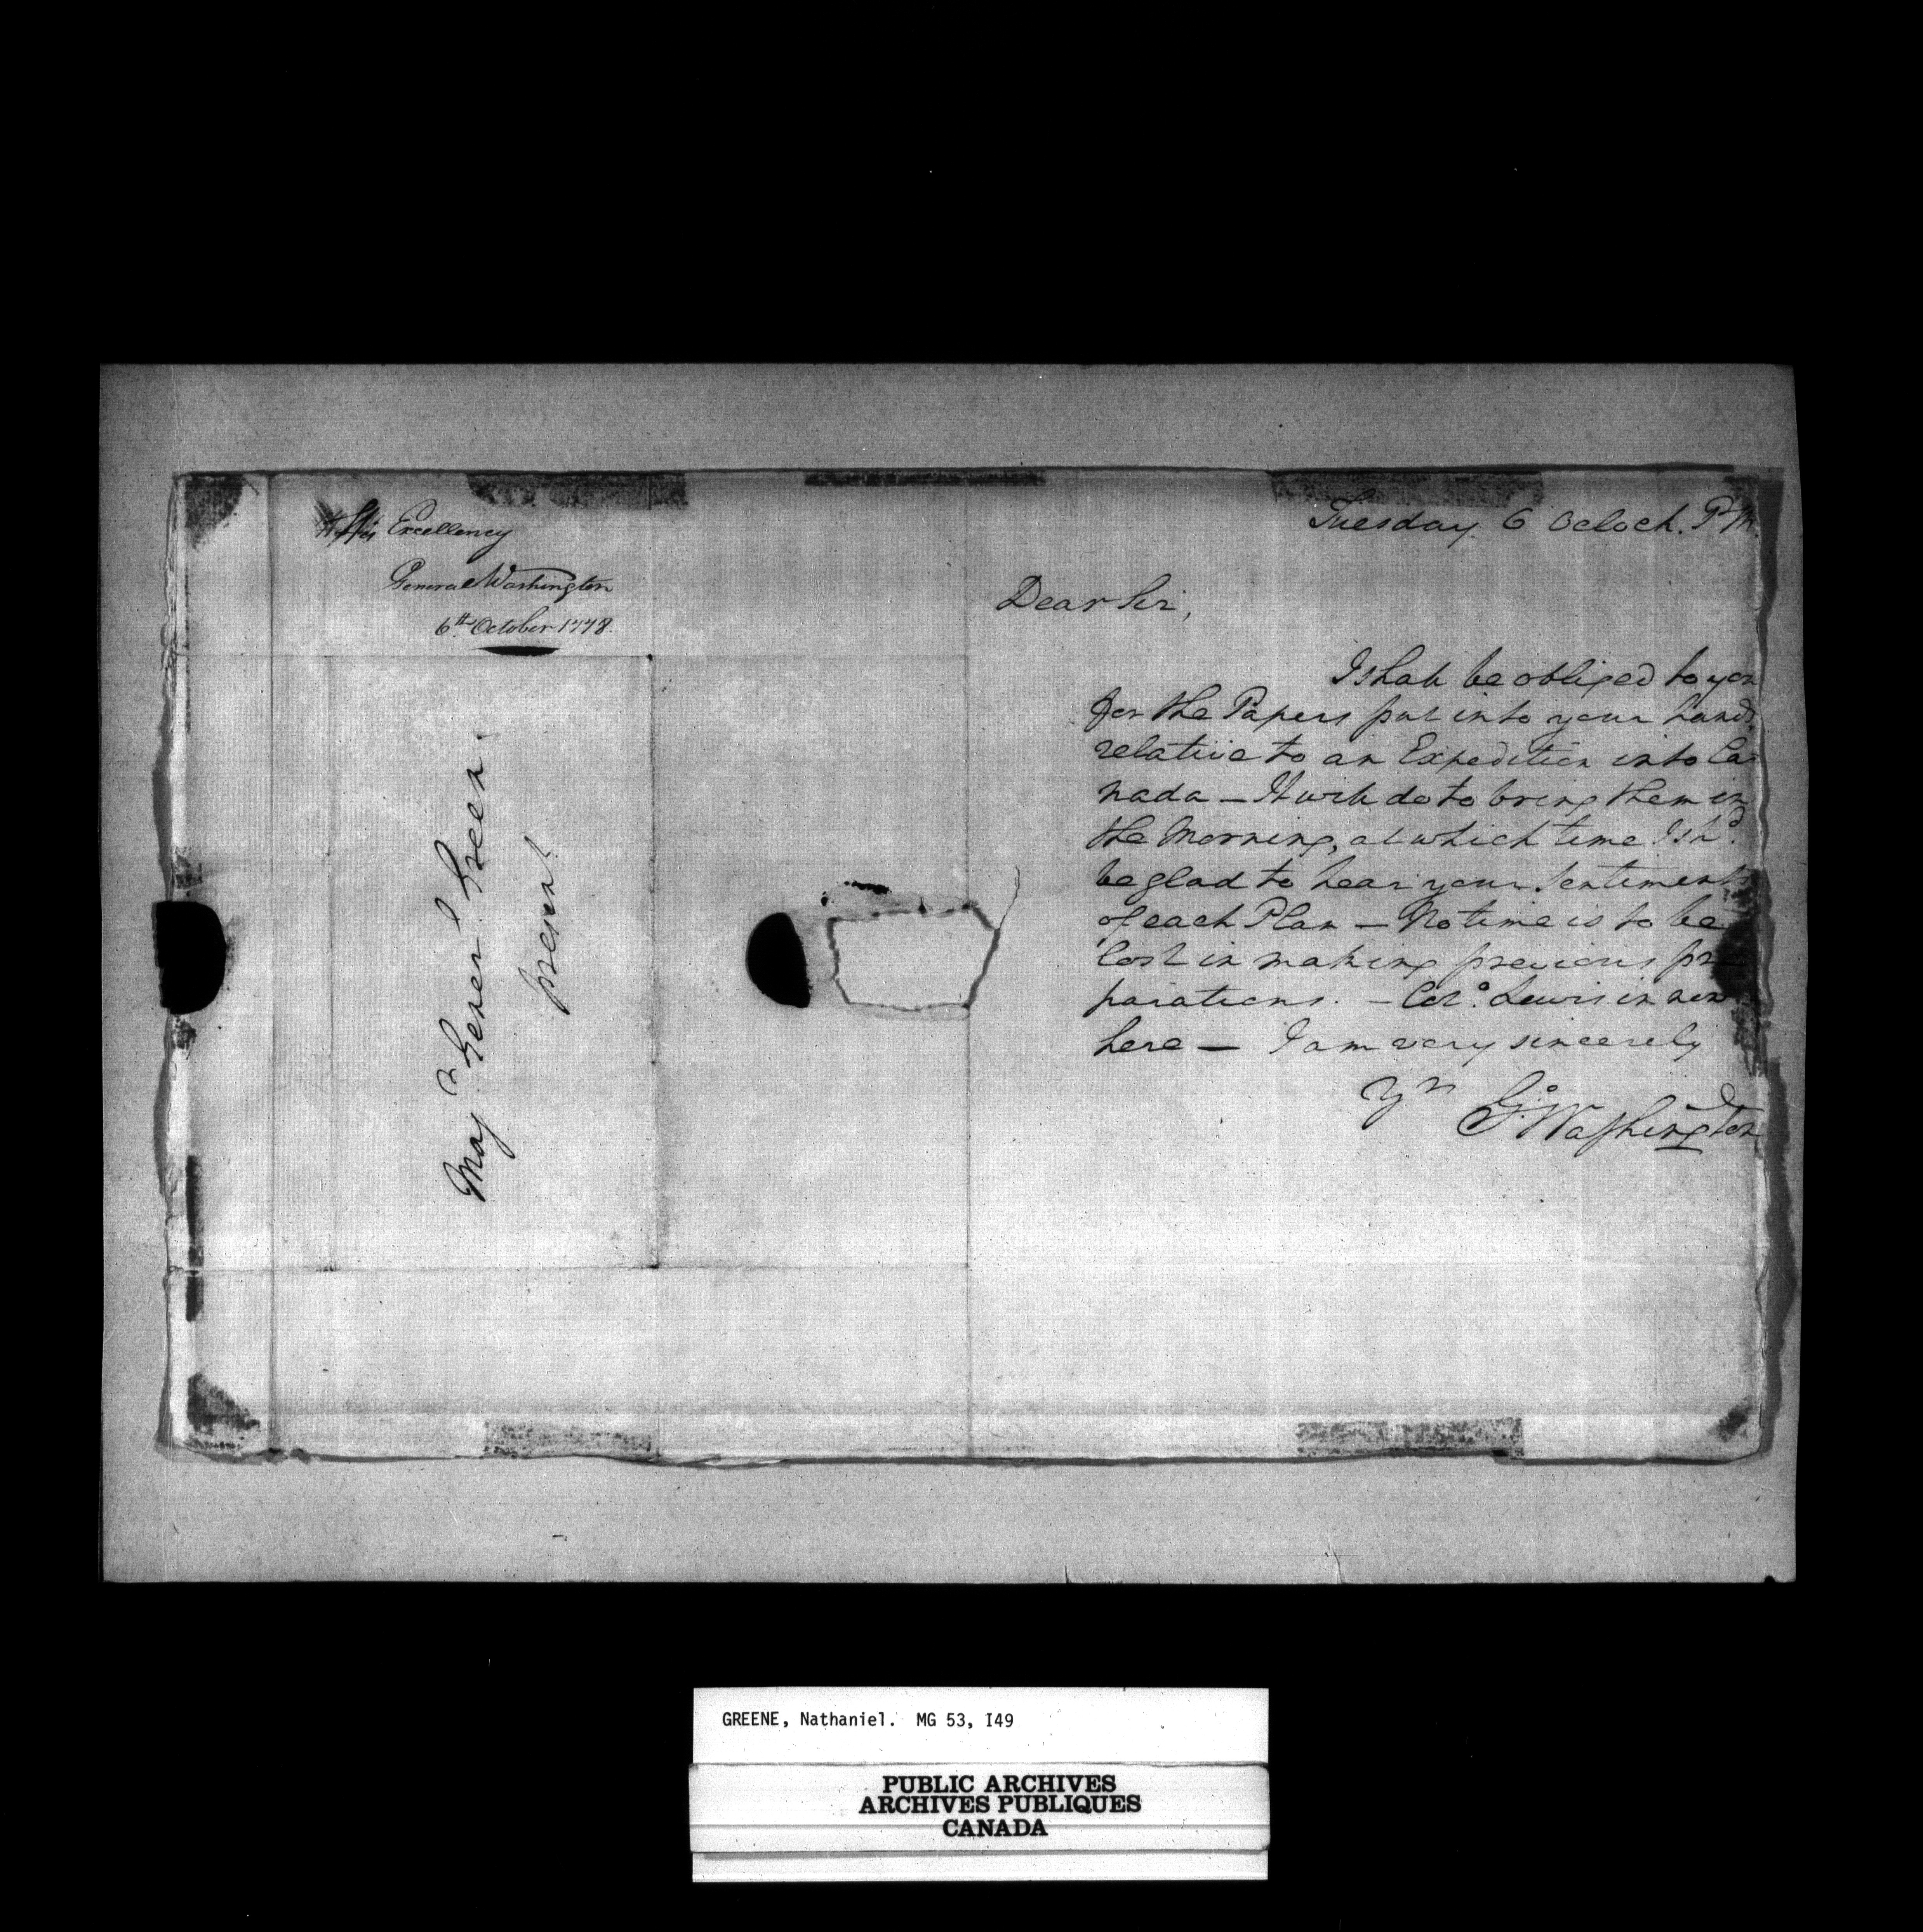 His Excellency
General Washington
6th October 1778.
Majr Generl Green.
present
Tuesday 6 Oclock. P.M.
Dear Sir,
I shall be obliged to you
for the Papers put into your hands
relative to an Expedition into Ca-
nada — It will do to bring them in
the Morning, at which time I shd.
be glad to hear your Sentiments
of each Plan — No time is to be
lost in making previous pre
parations. — Colo. Lewis is now
here — I am very sincerely
Yrs
Go: Washington
GREENE, Nathaniel. MG 53, I49
PUBLIC ARCHIVES
ARCHIVES PUBLIQUES
CANADA